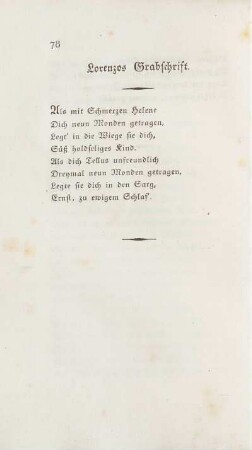 78
Lorenzos Grabschrift.
Als mit Schmerzen Helene
Dich neun Monden getragen,
Legt' in die Wiege sie dich,
Süß holdseliges Kind.
Als dich Tellus unfreundlich
Dreymal neun Monden getragen,
Legte sie dich in den Sarg,
Ernst, zu ewigem Schlaf.